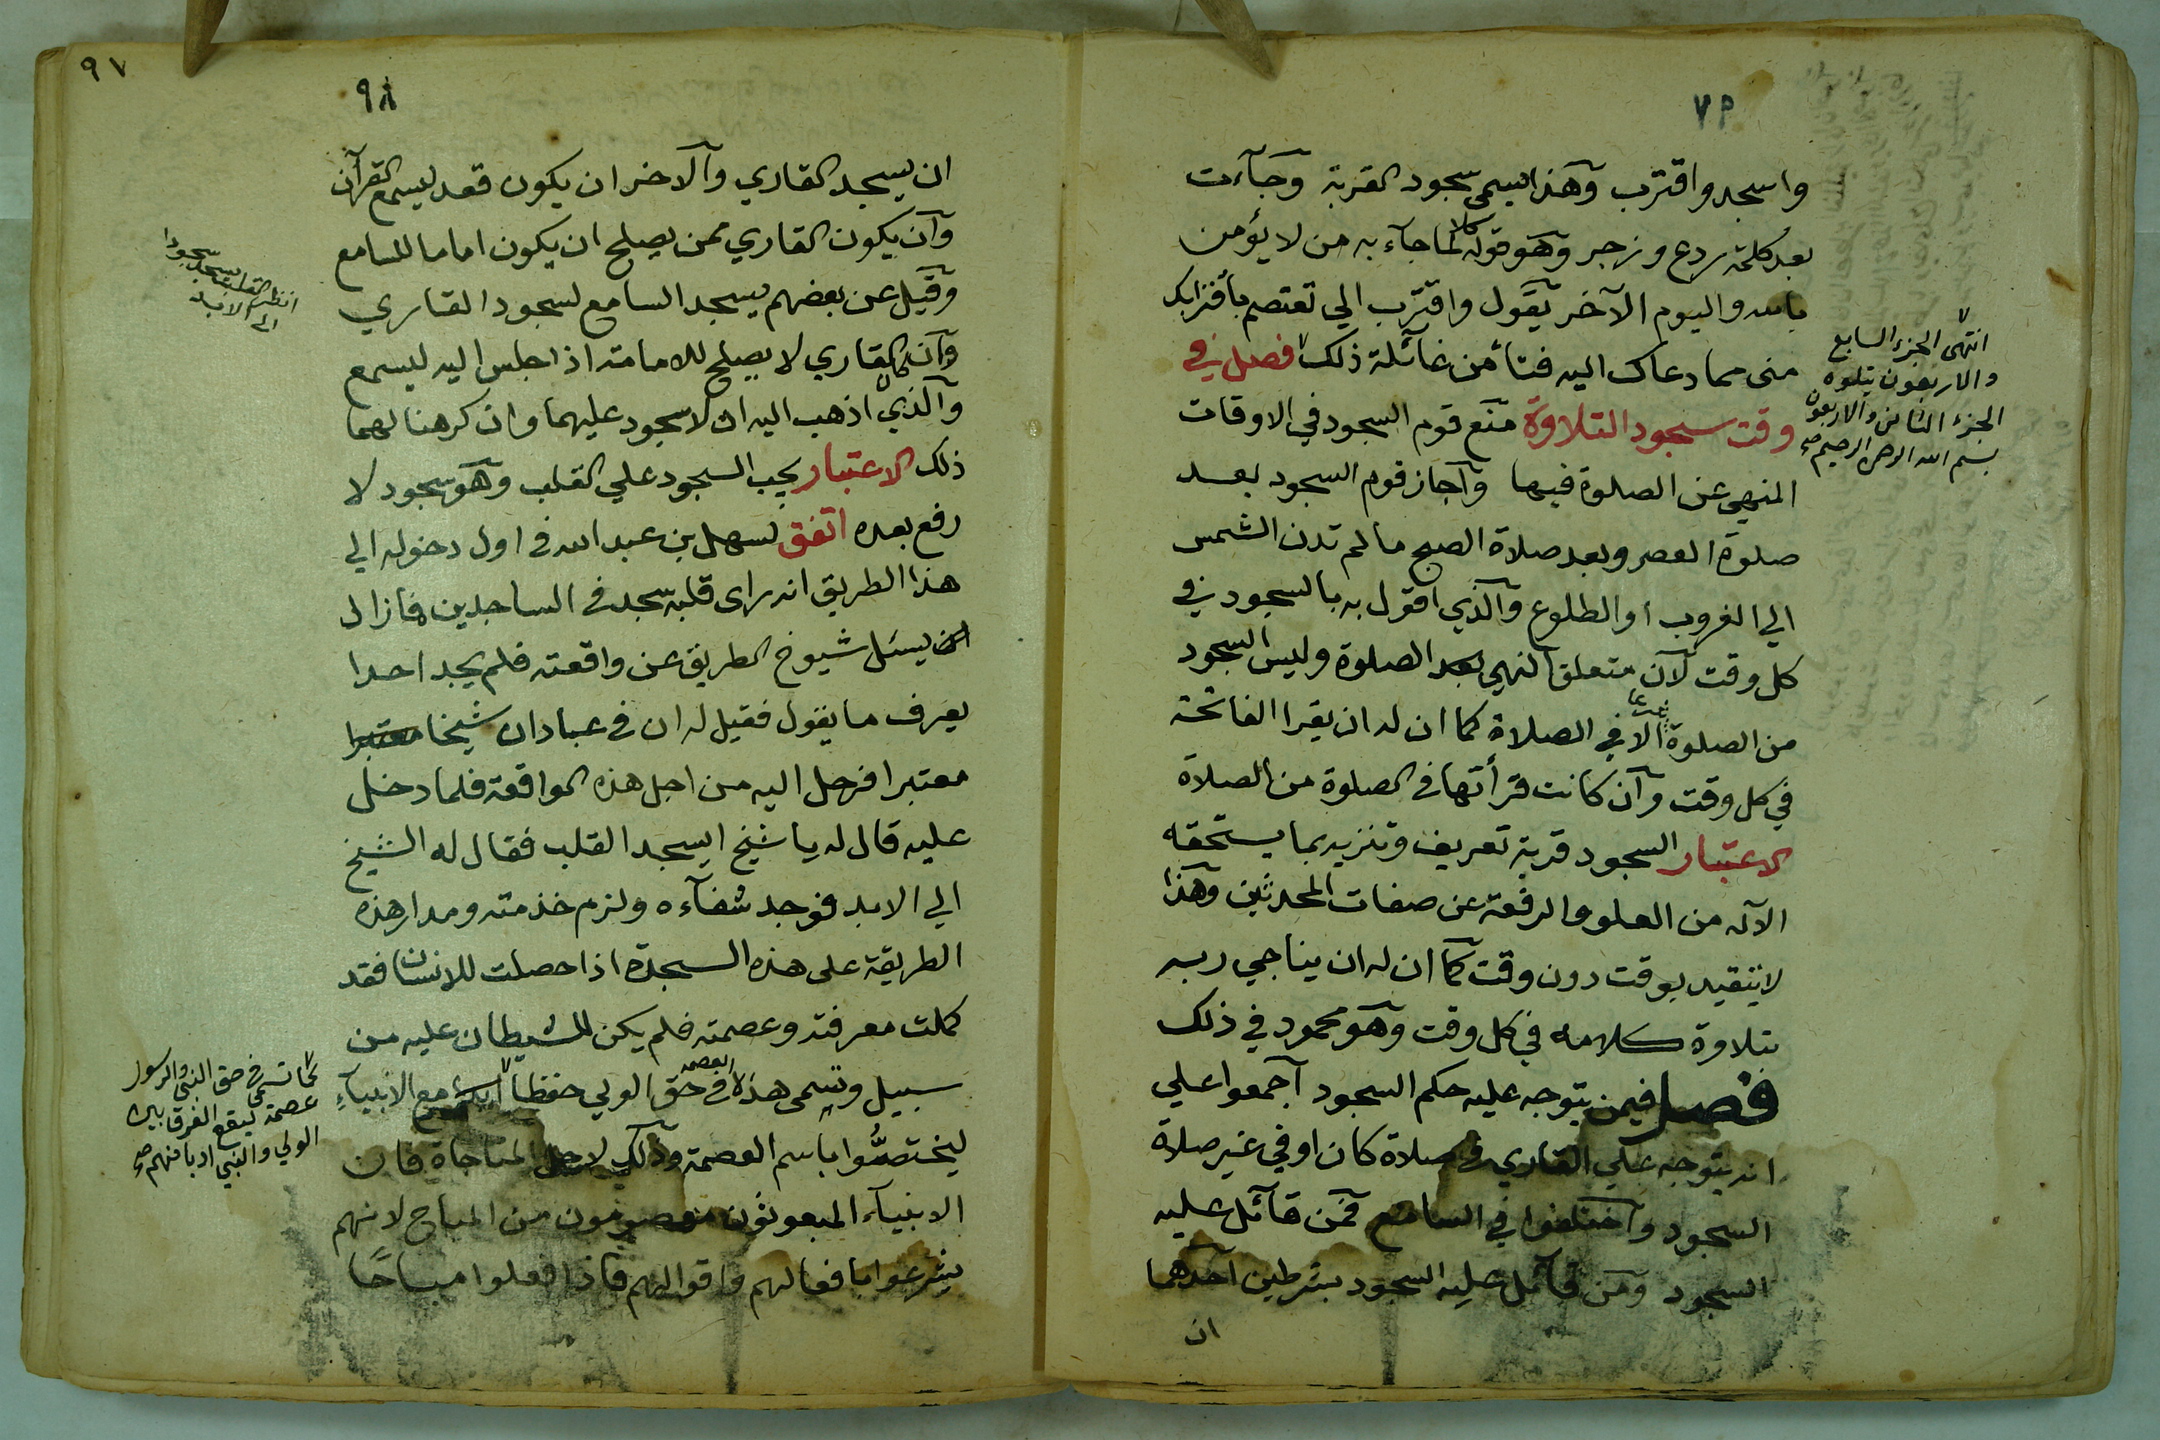 ٩٧
واسجد واقترب وهذا يسمى سجود القربة وجآءت
بعد كلمة ردع وزجر وهو قوله كلا لما جآء به من لا يؤمن
بالله واليوم الآخر يقول واقترب الي تعتصم بأقترابك
مني مما دعاك اليه فتأمن غآئلة ذلك فصل في
وقت سجود التلاوة منع قوم السجود في الاوقات
المنهي عن الصلوة فيها وآجاز قوم السجود بعد
صلوة العصر وبعد صلاة الصبح ما لم تدن الشمس
الي الغروب او الطلوع وآلذي اقول به بالسجود في
كل وقت لآن متعلق النهي بعد الصلوة وليس السجود
من الصلوة شرعا الا في الصلاة كما ان له ان يقرا الفاتحة
في كل وقت وآن كانت قرأتها في الصلوة من الصلاة
الاعتبار السجود قربة تعريف وتنزيه بما يستحقه
الآله من العلو والرفعة عن صفات المحدثين وهذا
لا يتقيد بوقت دون وقت كما ان له ان يناجي ربه
بتلاوة كلامه في كل وقت وهو محمود في ذلك
فصل فيمن يتوجه عليه حكم السجود آجمعوا علي
انه يتوجه علي القاري في صلاة كان او في غير صلاة
السجود وآختلفوا في السامع فمن قآئل عليه
السجود ومن قآئل عليه السجود بشرطين آحدهما
ان
انتهى الجزء السابع
والاربعون يتلوه
الجزء الثامن والاربعون
بسم الله الرحمن الرحيم صح
٩٧
٩٨
ان يسجد القاري وآلاخر ان يكون قعد ليسمع القرآن
وآن يكون القاري ممن يصلح ان يكون اماما للسامع
وقيل عن بعضهم يسجد السامع لسجود القاري
وآن كان القاري لا يصلح للامامته اذا جلس اليه ليسمع
وآلذي اذهب اليه ان لا سجود عليهما وان كرهنا لهما
ذلك الاعتبار يجب السجود علي القلب وهو سجود لا
رفع بعده اتفق لسهل بن عبد الله في اول دخوله الي
هذا الطريق انه راى قلبه سجد في الساجدين فما زال
يسئل شيوخ الطريق عن واقعته فلم يجد احدا
يعرف ما يقول فقيل له ان في عبادان شيخا معتبرا
معتبرا فرحل اليه من اجل هذه الواقعة فلما دخل
عليه قال له يا شيخ ايسجد القلب فقال له الشيخ
الي الابد فوجد شفآءه ولزم خدمته ومدار هذه
الطريقة على هذه السجدة اذا حصلت للانسان فقد
كملت معرفته وعصمته فلم يكن للشيطان عليه من
سبيل وتسمى هذه العصمة في حق الولي حفظا مع الانبيآء
ليختصُّوا باسم العصمة وذلك لاجل المناجاة فان
الانبيآء المبعوثون معصومون من المباح لانهم
يشرعوا بافعالهم واقوالهم فاذا فعلوا مباحًا
انظر القلب يسجد سجودا
الى الابد
كما تسمى في حق النبي والرسول
عصمة ليقع الفرقا بين
الولي والنبي ادبا منهم صح